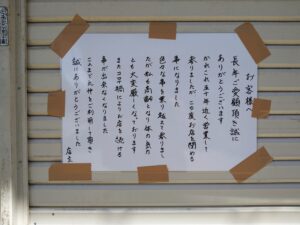 お客様へ
長年ご愛顧頂き誠に
ありがとうございます
かれこれ五十年近く営業して
参りましたがこの度お店を閉める
事になりました
色々な事を乗り越えて参りまし
たが私も高齢になり体の衰え
とも大変厳しくなっております
またコロナ禍によりお店を続ける
事が出来なくなりました
これまで元仲をご利用して頂き
誠にありがとうございました
店主